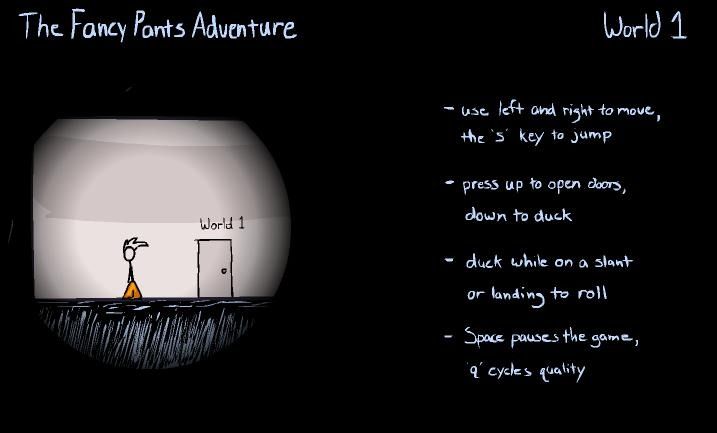 The Fancy Pants Adventure
World 1
World 1
- use left and right to move,
the 's' key to jump
- press up to open doors,
down to duck
- duck while on a slant
or landing to roll
- Space pauses the game,
'q' cycles quality